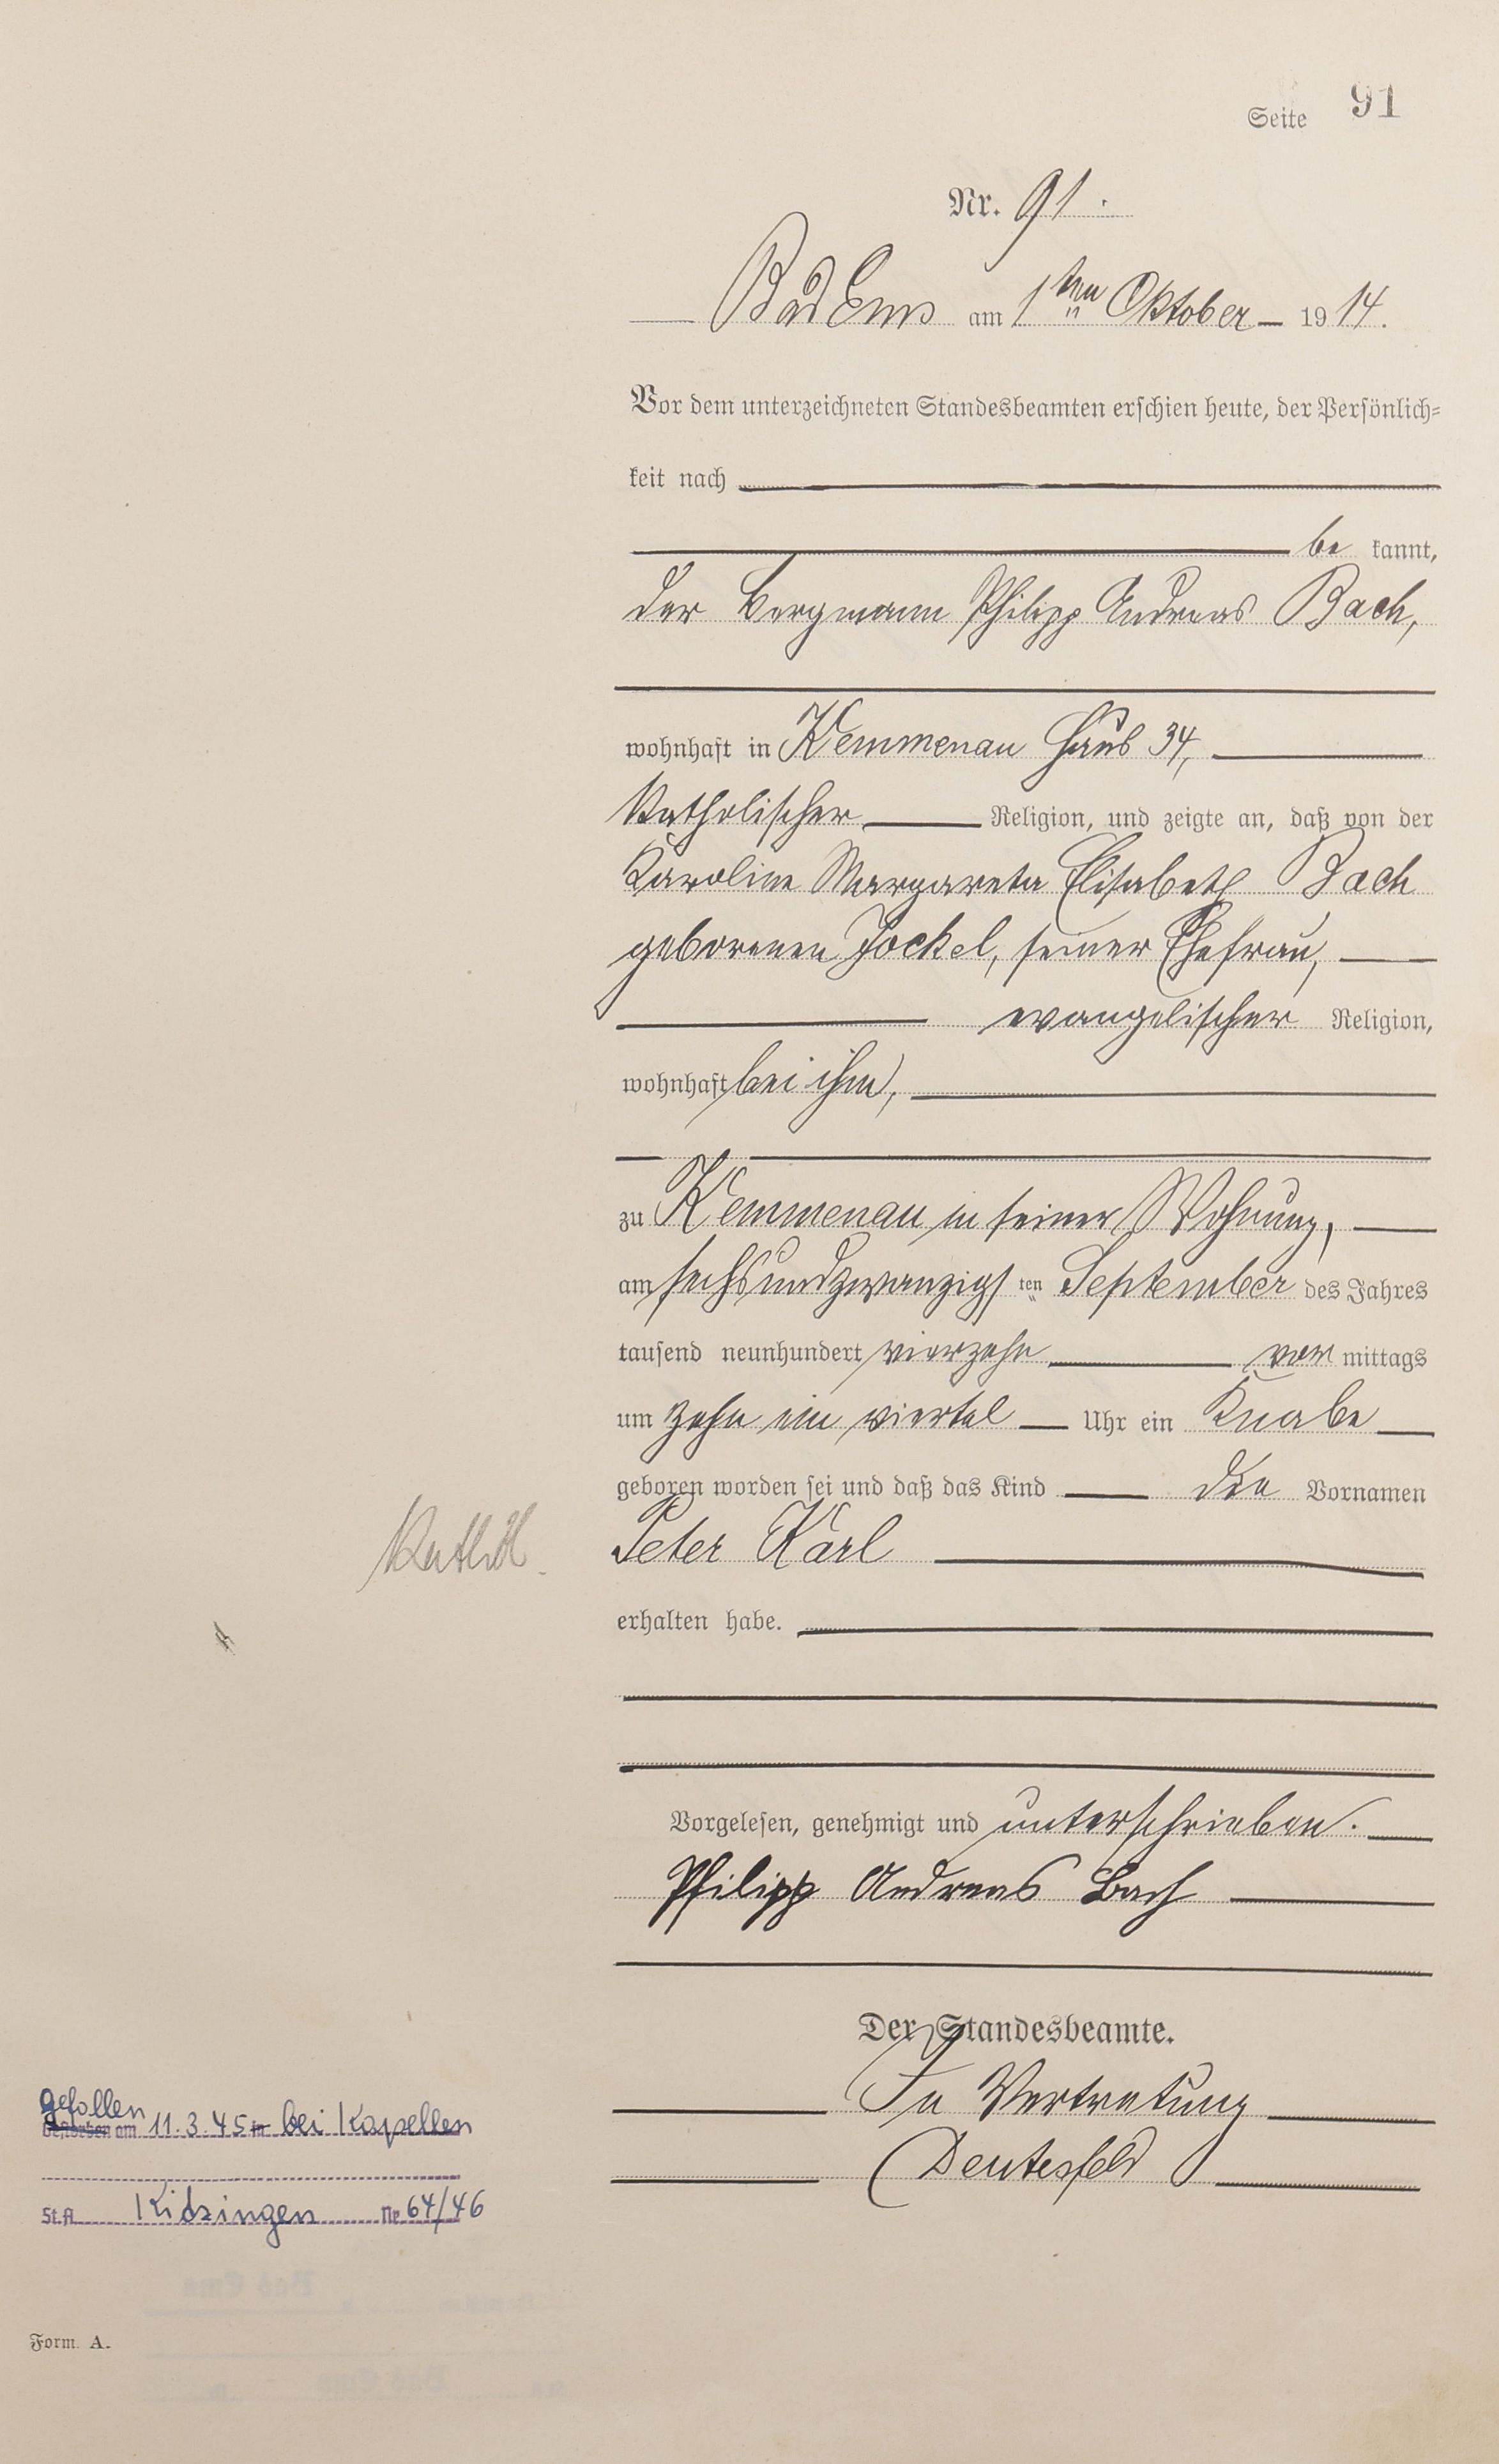 Seite 91
Nr. 91.
Bad Ems am 1ten Oktober 1914.
Vor dem unterzeichneten Standesbeamten erschien heute, der Persönlich=
keit nach
be kannt,
der Bergmann Philipp Andreas Bach,
wohnhaft in Kemmenau Haus 34,
Katholischer Religion, und zeigte an, daß von der
Karoline Margareta Elisabeth Bach
geborenen Jockel, seiner Ehefrau,
evangelischer Religion,
wohnhaft bei ihm,
zu Kemmenau in seiner Wohnung,
am sechsundzwanzigs ten September des Jahres
tausend neunhundert vierzehn vor mittags
um zehn ein viertel Uhr ein Knabe
geboren worden sei und daß das Kind die Vornamen
Peter Karl
erhalten habe.
Vorgelesen, genehmigt und unterschrieben.
Philipp Andreas Bach
Der Standesbeamte.
In Vertretung
Deutesfeld
gefallen
Gestorben am 11.3.45 in bei Kapellen
St.A. Kidzingen Nr. 64/46
Form. A.